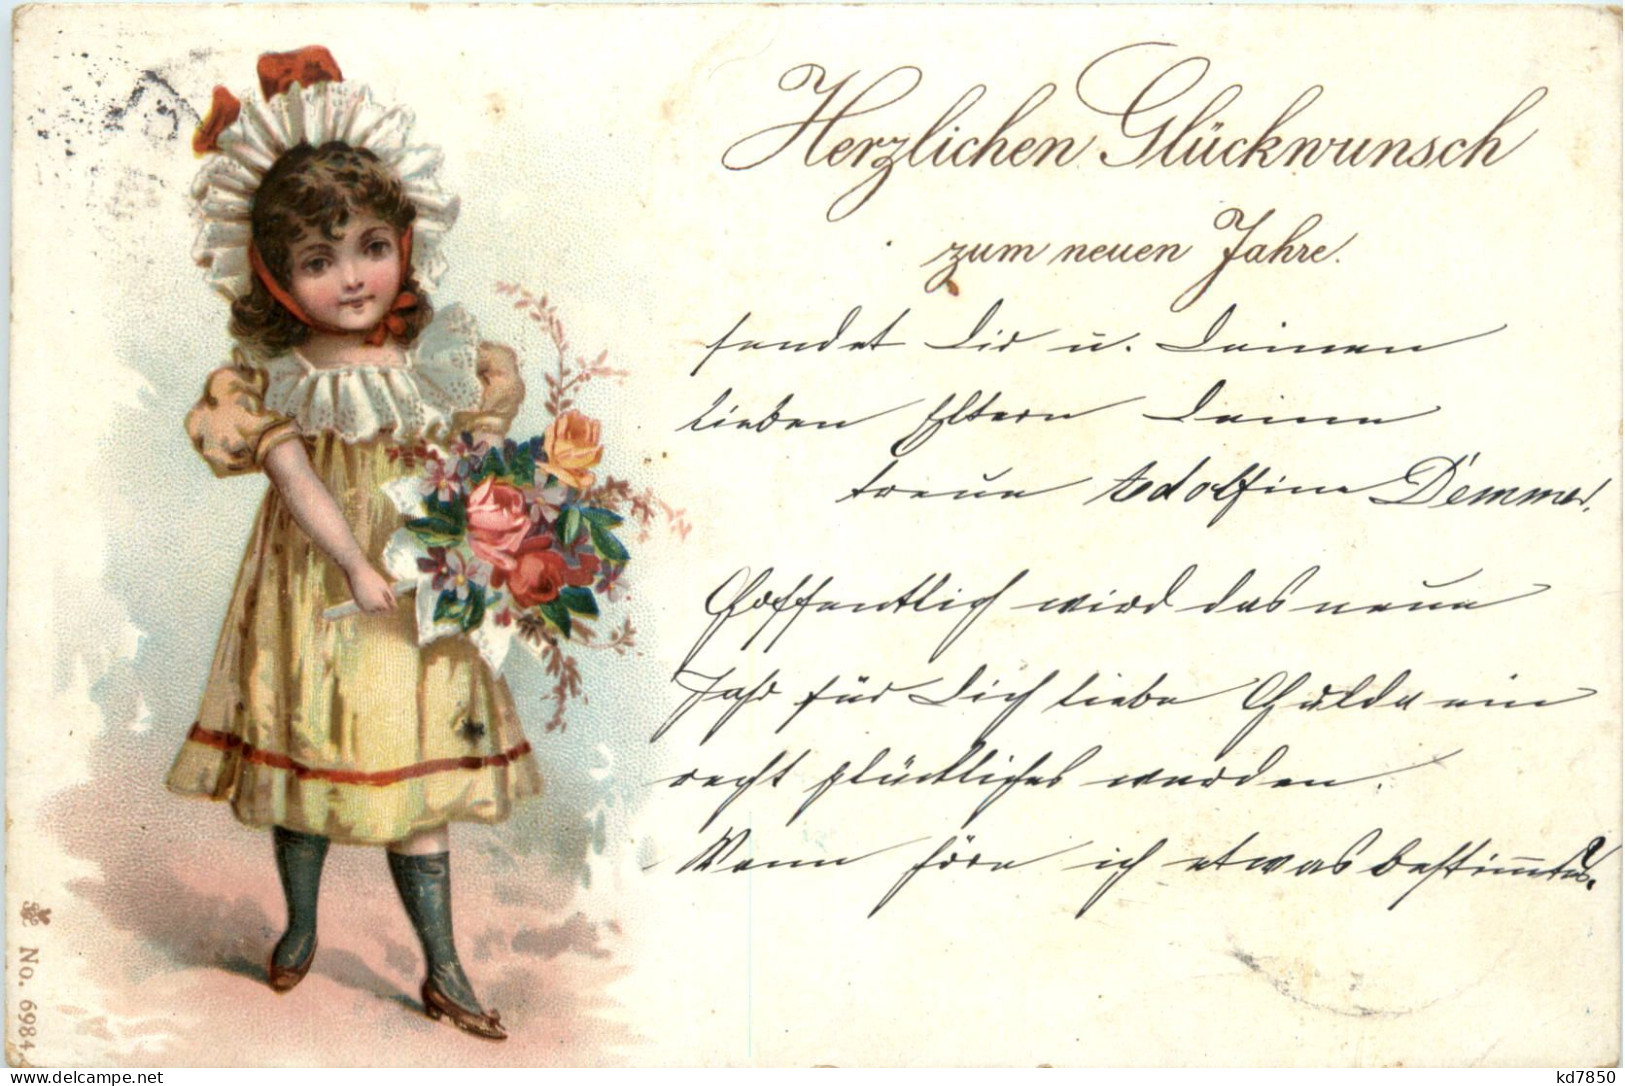 Herzlichen Glückwunsch
zum neuen Jahre.
sendet Dir u. Deinen
lieben Eltern Deine
treue Adolfine Demmer.
Hoffentlich wird das neue
Jahr für Dich liebe Hulda ein
recht glückliches werden.
Wann höre ich etwas bestimmtes?
No. 6984
kd7850